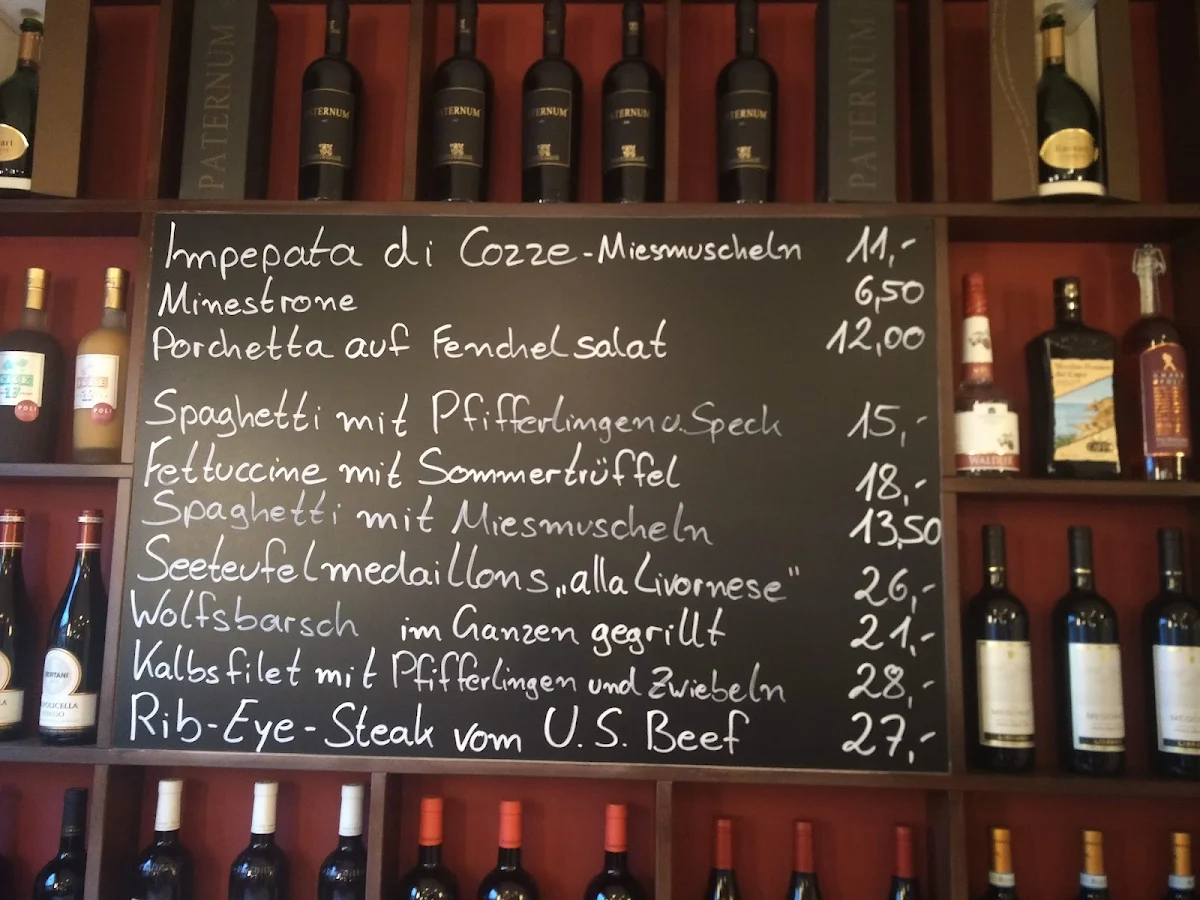 PATERNUM
TERNUM
TERNUM
TERNUM
TERNUM
TERNUM
PATERNUM
Impepata di Cozze - Miesmuscheln 11,-
Minestrone 6,50
Porchetta auf Fenchelsalat 12,00
Spaghetti mit Pfifferlingen u. Speck 15,-
Fettuccine mit Sommertrüffel 18,-
Spaghetti mit Miesmuscheln 13,50
Seeteufelmedaillons „alla Livornese" 26,-
Wolfsbarsch im Ganzen gegrillt 21,-
Kalbsfilet mit Pfifferlingen und Zwiebeln 28,-
Rib-Eye-Steak vom U.S. Beef 27,-
POLI
POLI